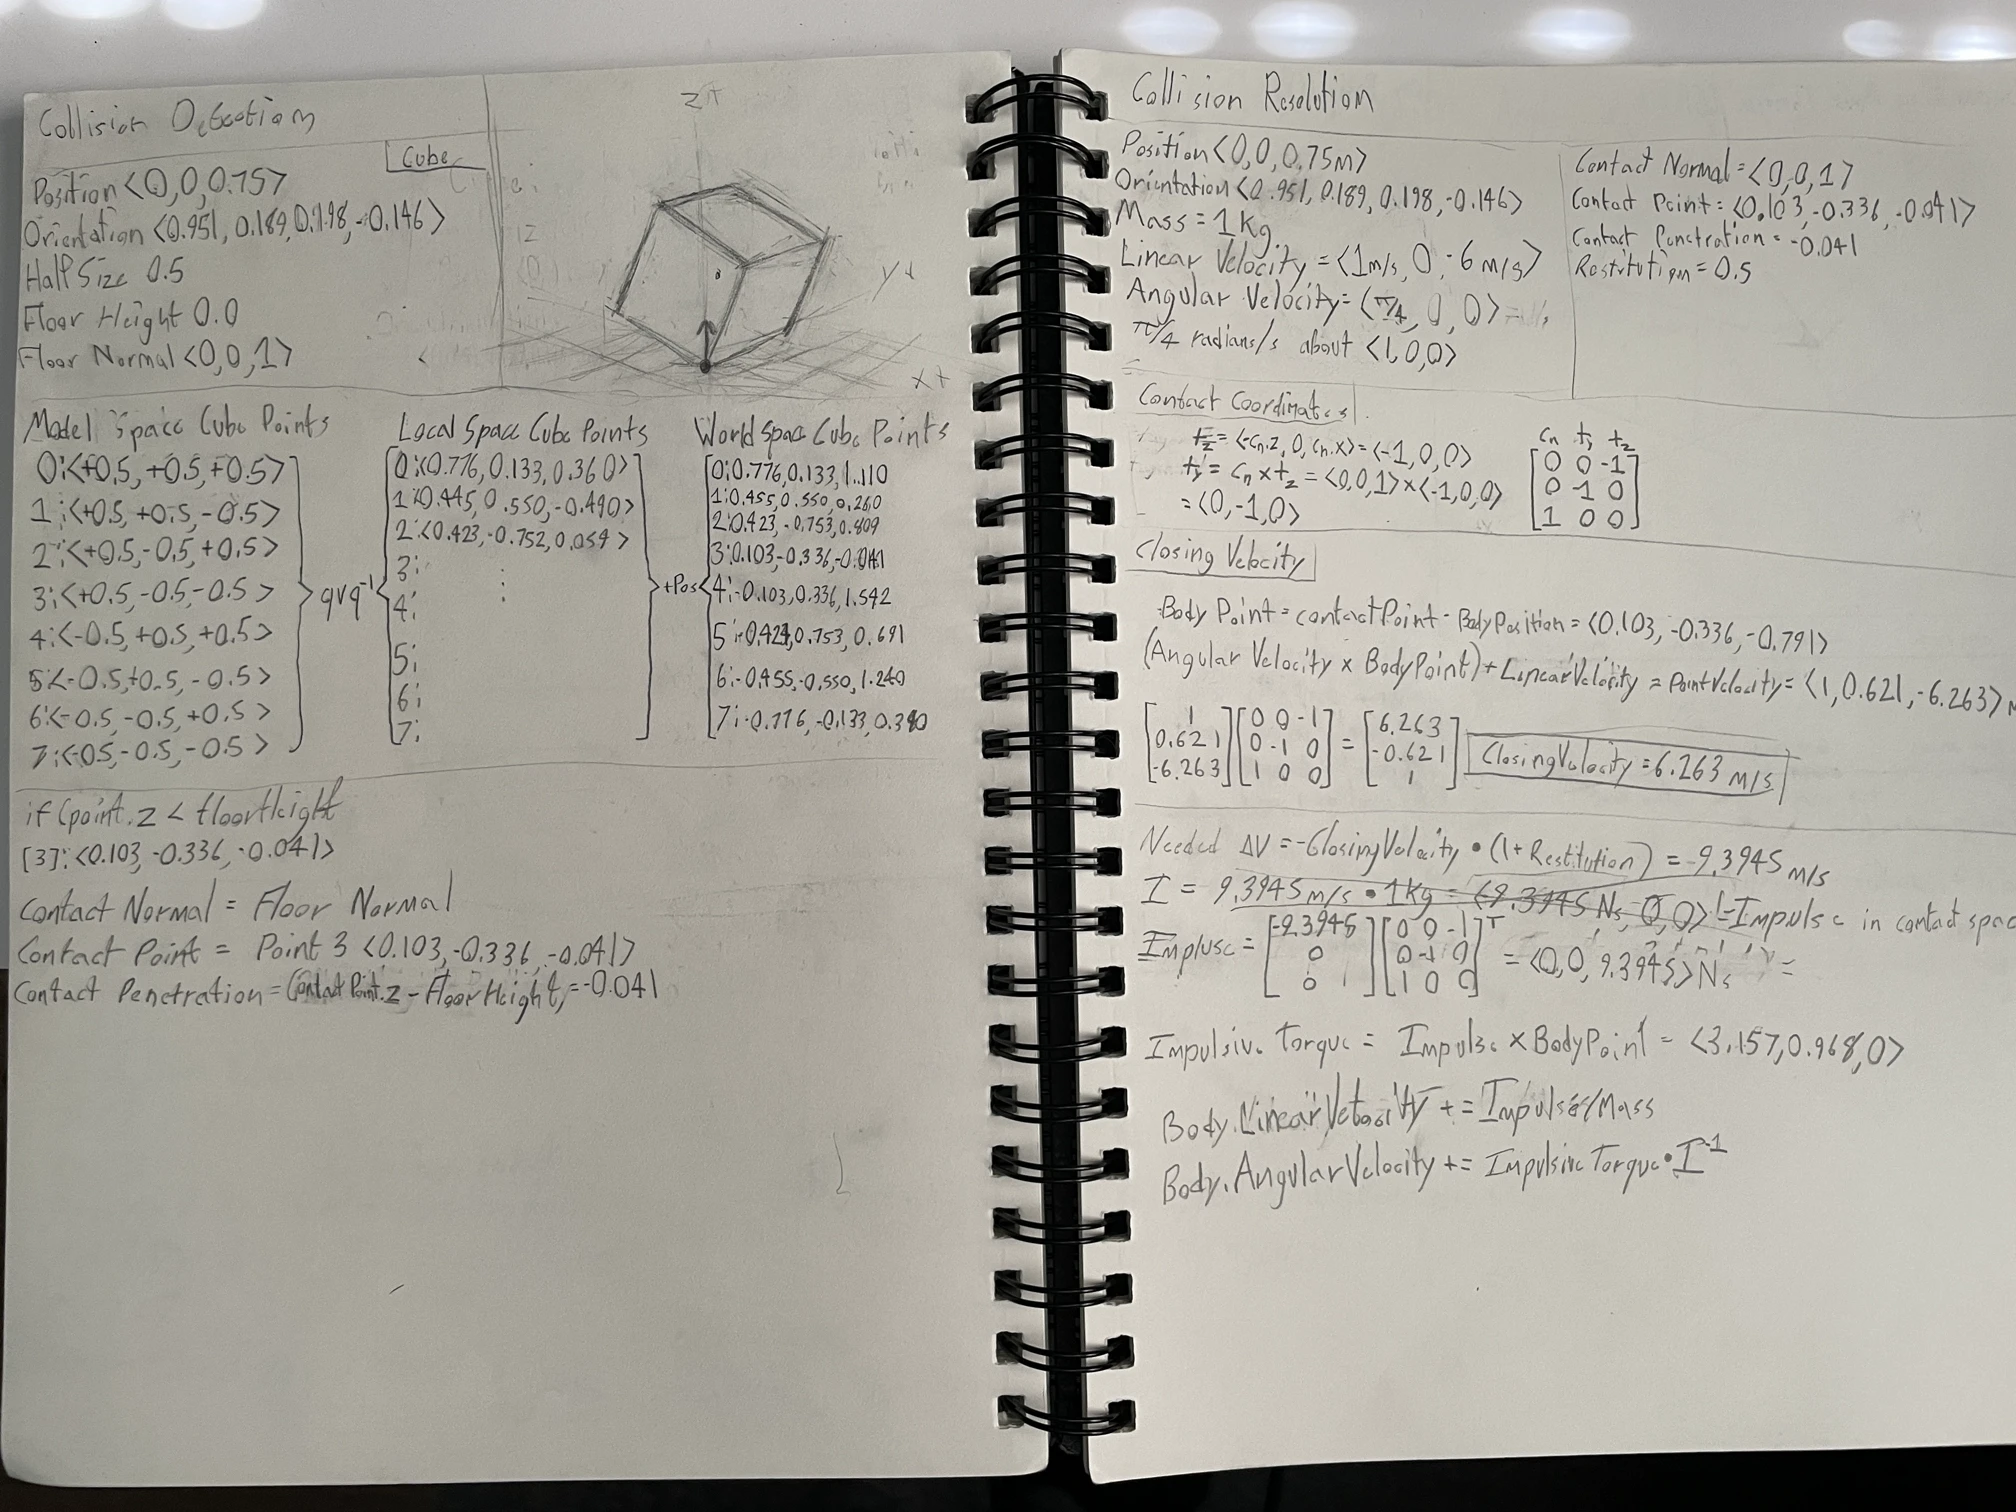 Collision Detection
Cube
Position <0,0,0.75>
Orientation <0.951, 0.189, 0.198, -0.146>
Half Size 0.5
Floor Height 0.0
Floor Normal <0,0,1>
z↑
y+
x+
Model Space Cube Points
0:<+0.5, +0.5, +0.5>
1:<+0.5, +0.5, -0.5>
2:<+0.5, -0.5, +0.5>
3:<+0.5, -0.5, -0.5>
4:<-0.5, +0.5, +0.5>
5:<-0.5, +0.5, -0.5>
6:<-0.5, -0.5, +0.5>
7:<-0.5, -0.5, -0.5>
qvq⁻¹
Local Space Cube Points
0:<0.776, 0.133, 0.360>
1:<0.445, 0.550, -0.490>
2:<0.423, -0.752, 0.059>
3:
4:
5:
6:
7:
+Pos
World Space Cube Points
0:0.776, 0.133, 1.110
1:0.455, 0.550, 0.260
2:0.423, -0.753, 0.809
3:0.103, -0.336, -0.041
4:-0.103, 0.336, 1.542
5:-0.423, 0.753, 0.691
6:-0.455, -0.550, 1.240
7:-0.776, -0.133, 0.390
if (point.z < floorHeight
[3]: <0.103, -0.336, -0.041>
Contact Normal = Floor Normal
Contact Point = Point 3 <0.103, -0.336, -0.041>
Contact Penetration = Contact Point.z - Floor Height, = -0.041
Collision Resolution
Position <0,0,0.75m>
Orientation <0.951, 0.189, 0.198, -0.146>
Mass = 1 Kg
Linear Velocity = <1m/s, 0, -6 m/s>
Angular Velocity = <π/4, 0, 0>
π/4 radians/s about <1,0,0>
Contact Normal = <0,0,1>
Contact Point = <0.103, -0.336, -0.041>
Contact Penetration = -0.041
Restitution = 0.5
Contact Coordinates
tz = <-cn.z, 0, cn.x> = <-1,0,0>
ty = cn × tz = <0,0,1> × <-1,0,0>
= <0,-1,0>
cn ty tz
0 0 -1
0 -1 0
1 0 0
Closing Velocity
Body Point = contactPoint - BodyPosition = <0.103, -0.336, -0.791>
(Angular Velocity × BodyPoint) + LinearVelocity = PointVelocity = <1, 0.621, -6.263> M
[1 [0 0 -1] [6.263
0.621 0 -1 0 = -0.621
-6.263] 1 0 0] 1]
ClosingVelocity = 6.263 m/s
Needed ΔV = -ClosingVelocity • (1 + Restitution) = -9.3945 m/s
I = 9.3945 m/s • 1 Kg = <9.3945 Ns, 0, 0> Impulse in contact spac
Implusc = [-9.3945 [0 0 -1]ᵀ
0 0 -1 0 = <0, 0, 9.3945> Ns =
0] 1 0 0]
Impulsive Torque = Impulse × BodyPoint = <3.157, 0.968, 0>
Body.LinearVelocity += Impulse/Mass
Body.AngularVelocity += Impulsive Torque • I⁻¹